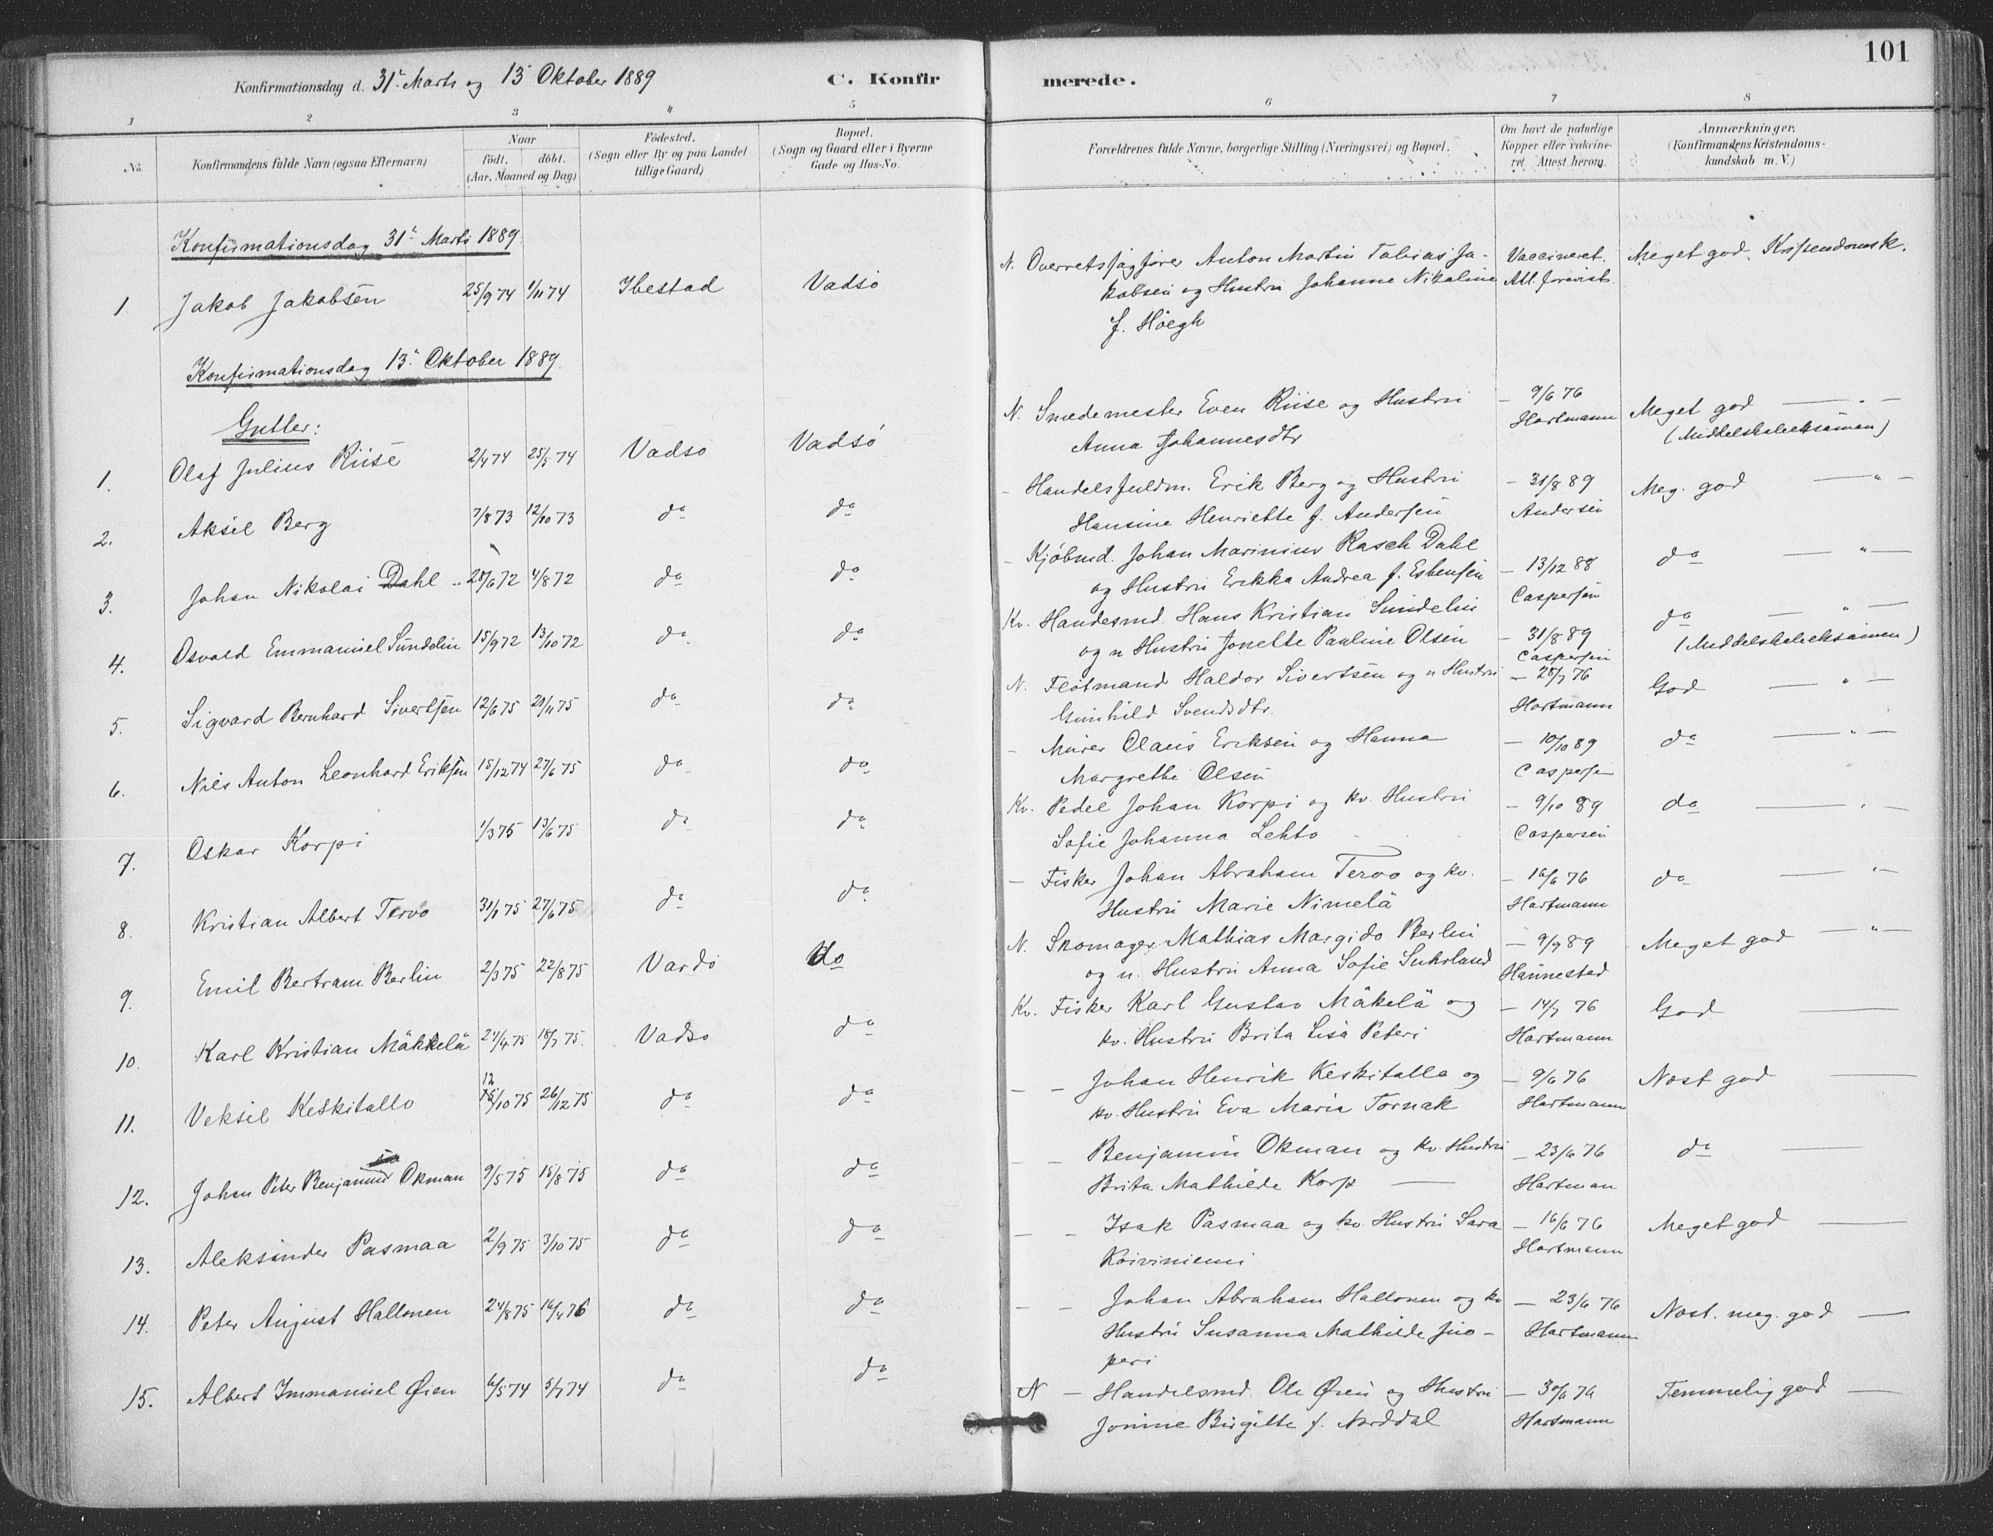 101
Konfirmationsdag d. 31te Marts og 13 Oktober 1889
C. Konfirmerede.
1 2 3 4 5 6 7 8
No.
Konfirmandens fulde Navn (ogsaa Efternavn)
Naar
födt. döbt.
(Aar, Maaned og Dag)
Födested.
(Sogn eller By og paa Landet
tillige Gaard)
Bopæl.
(Sogn og Gaard eller i Byerne
Gade og Hus-No.
Forældrenes fulde Navne, borgerlige Stilling (Næringsvei) og Bopæl.
Om havt de naturlige
Kopper eller vaccine-
ret. Attest herom.
Anmærkninger.
(Konfirmandens Kristendoms-
kundskab m. V.)
Konfirmationsdag 31te Marts 1889.
1. Jakob Jakobsen 25/9 74 1/11 74 Ibestad Vadsö
N. Overretssagfører Anton Martin Tobias Ja-
kobsen og Hustru Johanne Nikoline
f. Höegh
Vaccineret.
Att. forevist.
Meget god Kristendomsk.
Konfirmationsdag 13de Oktober 1889.
Gutter:
1. Olaf Julius Riise 2/4 74 25/5 74 Vadsö Vadsö
N. Smedemester Even Riise og Hustru
Anna Johannesdtr
— 9/6 76
Hartmann
Meget god — " —
(Middelskoleeksamen)
2. Aksel Berg 7/8 73 12/10 73 do do
- Handelsfuldm. Erik Berg og Hustru
Hansine Henriette f. Andersen
— 31/8 89
Andersen
Meg. god — " —
3. Johan Nikolai Dahl 4/8 72 do do
- Kjöbmd. Johan Marinius Rasch Dahl
og Hustru Erikka Andrea f. Esbensen
— 13/12 88
Caspersen
do — " —
4. Osvald Emmanuel Sundelin 15/9 72 13/10 72 do do
Kv. Handesmd. Hans Kristian Sundelin
og n Hustru Jonette Pauline Olsen
— 31/8 89
Caspersen
do — " —
(Middelskoleeksamen)
5. Sigvard Bernhard Sivertsen 12/6 75 21/11 75 do do
N. Flötmand Haldor Sivertsen og n Hustru
Gunhild Svendsdtr.
— 28/7 76
Hartmann
God — " —
6. Nils Anton Leonhard Eriksen 15/12 74 27/6 75 do do
- Murer Olaus Eriksen og Hanna
Margrethe Olsen
— 10/10 89
Caspersen
do — " —
7. Oskar Korpi 1/3 75 13/6 75 do do
Kv. Pedel Johan Korpi og kv. Hustru
Sofie Johanna Lehto
— 9/10 89
Caspersen
do — " —
8. Kristian Albert Tervo 31/1 75 27/6 75 do do
- Fisker Johan Abraham Tervo og kv.
Hustru Marie Nimelä
— 16/6 76
Hartmann
do — " —
9. Emil Bertram Berlin 2/3 75 22/8 75 Vardö do
N. Skomager Mathias Margido Berlin
og n. Hustru Anna Sofie Suhrland
— 9/9 89
Hannestad
Meget god — " —
10. Karl Kristian Mäkkelä 24/4 75 18/7 75 Vadsö do
Kv. Fisker Karl Gustav Mäkelä og
kv. Hustru Brita Lisa Peteri
— 14/7 76
Hartmann
God —
11. Veksel Keskitallo 12/10 75 26/12 75 do do
- - Johan Henrik Keskitallo og
kv. Hustru Eva Maria Tornak
— 9/6 76
Hartmann
Nost god —
12. Johan Peter Benjamin Okman 9/5 75 15/8 75 do do
- - Benjamin Okman og kv. Hustru
Brita Mathilde Korp —
— 23/6 76
Hartman
do —
13. Aleksander Pasmaa 2/9 75 3/10 75 do do
- - Isak Pasmaa og kv. Hustru Sara
Koiviniemi
— 16/6 76
Hartmann
Meget god —
14. Peter August Haltonen 24/8 75 16/4 76 do do
- - Johan Abraham Haltonen og kv
Hustru Susanna Mathilde Juo-
peri
— 23/6 76
Hartmann
Nost. meg. god —
15. Albert Immanuel Øien 6/5 74 5/7 74 do do
N - Handelsmd. Ole Øien og Hustru
Jonine Birgitte f. Norddal
— 30/6 76
Hartmann
Temmelig god —